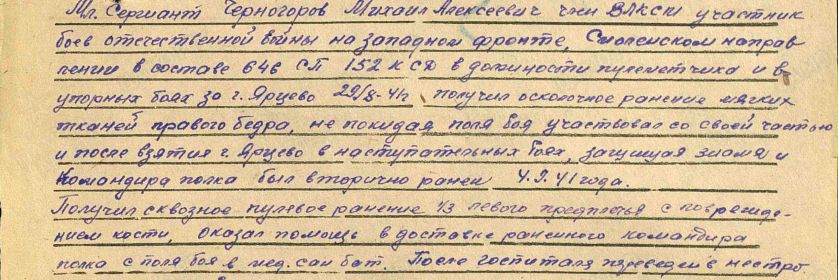 Мл. Сержант Черногоров Михаил Алексеевич член ВЛКСМ участник
боев отечественной войны на западном фронте, Смоленском направ
лении в составе 646 СП 152 К СД в должности пулеметчика и в
упорных боях за г. Ярцево 29/8-41г получил осколочное ранение мягких
тканей правого бедра, не покидая поля боя участвовал со своей частью
и после взятия г. Ярцево в наступательных боях, защищая знамя и
Командира полка был вторично ранен 4.9.41 года.
Получил сквозное пулевое ранение 1/3 левого предплечья с поврежде-
нием кости, оказал помощь в доставке раненного командира
полка с поля боя в мед. сан бат. После госпиталя переведен в нестро